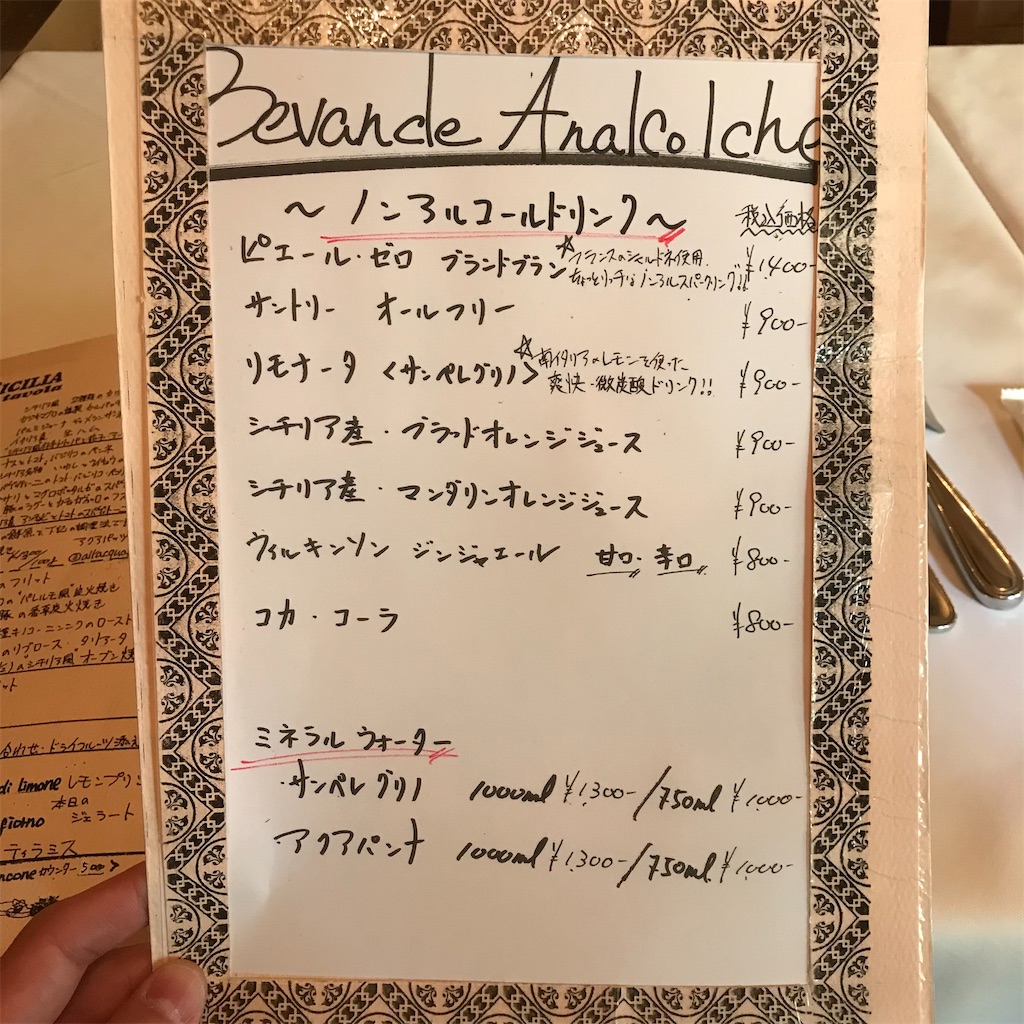 Bevande Analcolche
～ノンアルコールドリンク～ 税込価格
ピエール・ゼロ ブランドブラン ☆フランスのシャルドネ使用、 ¥1,400-
ちょっとリッチなノンアルスパークリング!!
サントリー オールフリー ¥900-
リモナータ <サンペレグリノ> ☆南イタリアのレモンを使った ¥900-
爽快・微炭酸ドリンク!!
シチリア産・ブラッドオレンジジュース ¥900-
シチリア産・マンダリンオレンジジュース ¥900-
ウィルキンソン ジンジャエール 甘口・辛口 ¥800-
コカ・コーラ ¥800-
ミネラルウォーター
・サンペレグリノ 1000ml ¥1,300-/750ml ¥1,000-
・アクアパンナ 1000ml ¥1,300-/750ml ¥1,000-
SICILIA
tavola
のフリット
の"パレルモ風"炭火焼き
豚の香草炭火焼き
のリブロース・タリアータ
の"シチリア風"オーブン焼
合わせ・ドライフルーツ添え
di Limone レモンプリン
本日の
giorno ジェラート
ティラミス